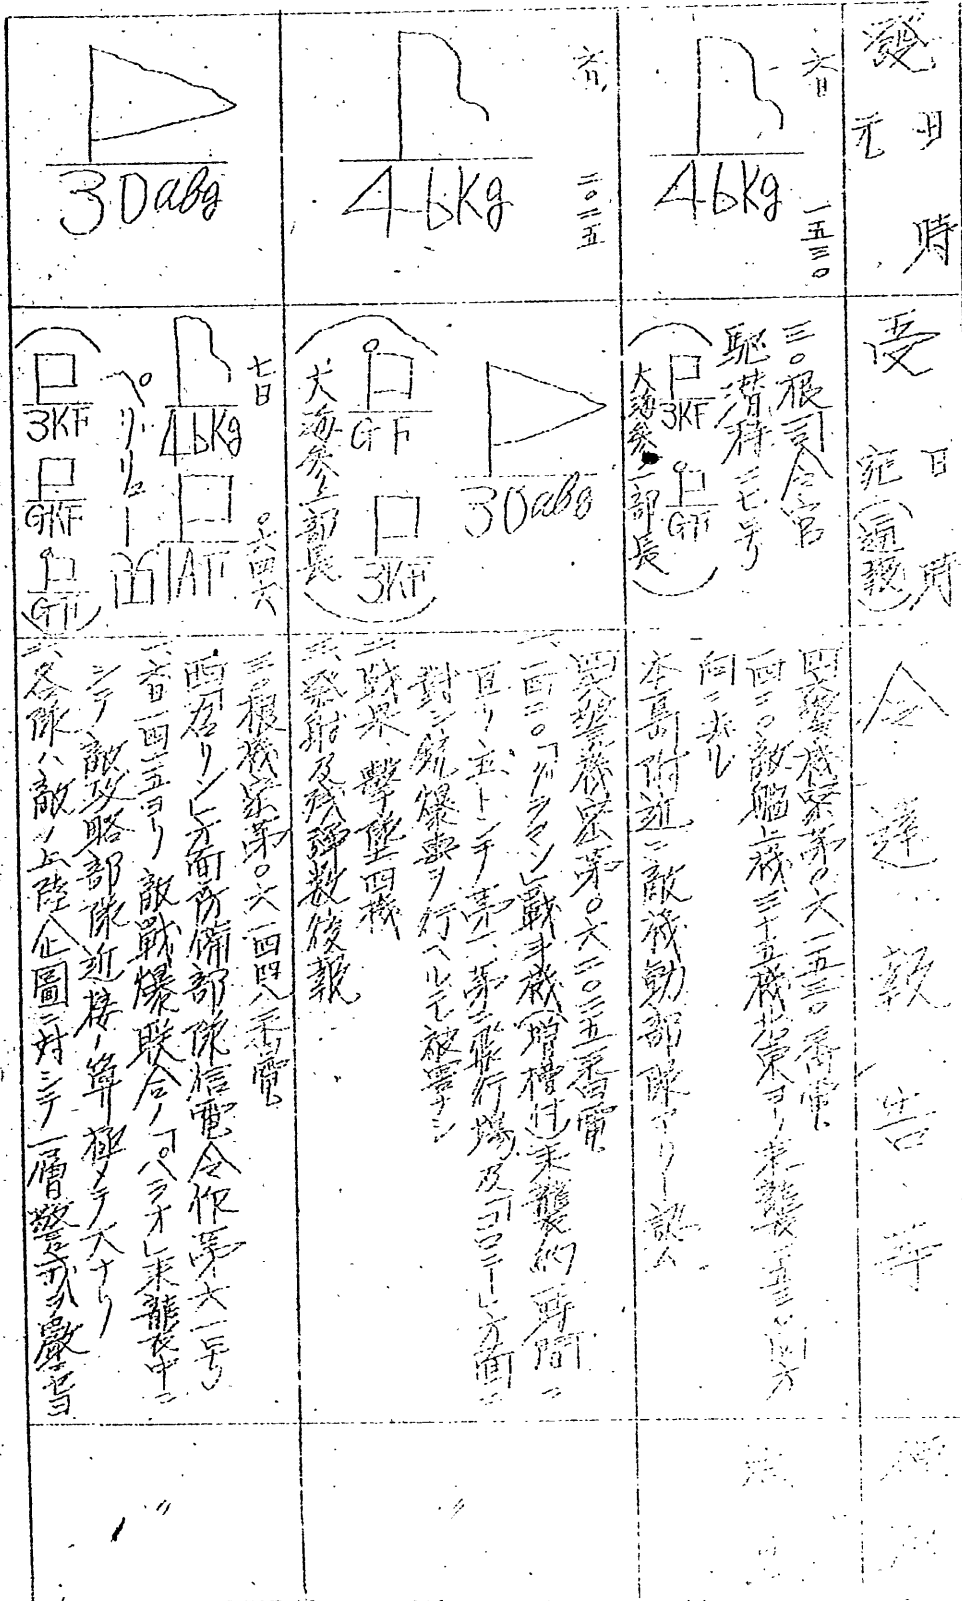 發 日時
元
受 日時
宛(通報)
令達報告等
六日 一五三〇
46Kg
三〇根司令官
駆潜特三七号
3KF GF
大海参一部長
四六警機密第〇六一五三〇番電
一四二〇敵艦上機三十五機北東ヨリ来襲一五三〇西方
向ニ去ル
本島附近ニ敵機動部隊アリト認ム
六日 二〇二五
46Kg
30abg
GF 3KF
大海参一部長
四六警機密第〇六二〇二五番電
一、一四二〇「グラマン」戦斗機(増槽付)来襲約一時間ニ
亘リ主トシテ第一、第二飛行場及「コロニー」方面ニ
対シ銃爆撃ヲ行ヘルモ被害ナシ
二、戦果、撃墜四機
三、発射及残弾数後報
30abg
七日 〇六四六
46Kg 1AF
ペリリュー
3KF GKF GF
三〇根機密第〇六一四四八番電
西カロリン方面防備部隊信電令作第六一号
一、本日一四一五ヨリ敵戦爆聯合ノ「パラオ」来襲中ニ
シテ敵攻略部隊近接ノ算極メテ大ナリ
二、各隊ハ敵ノ上陸企圖ニ対シテ一層警戒ヲ厳ニセヨ
〃
〃